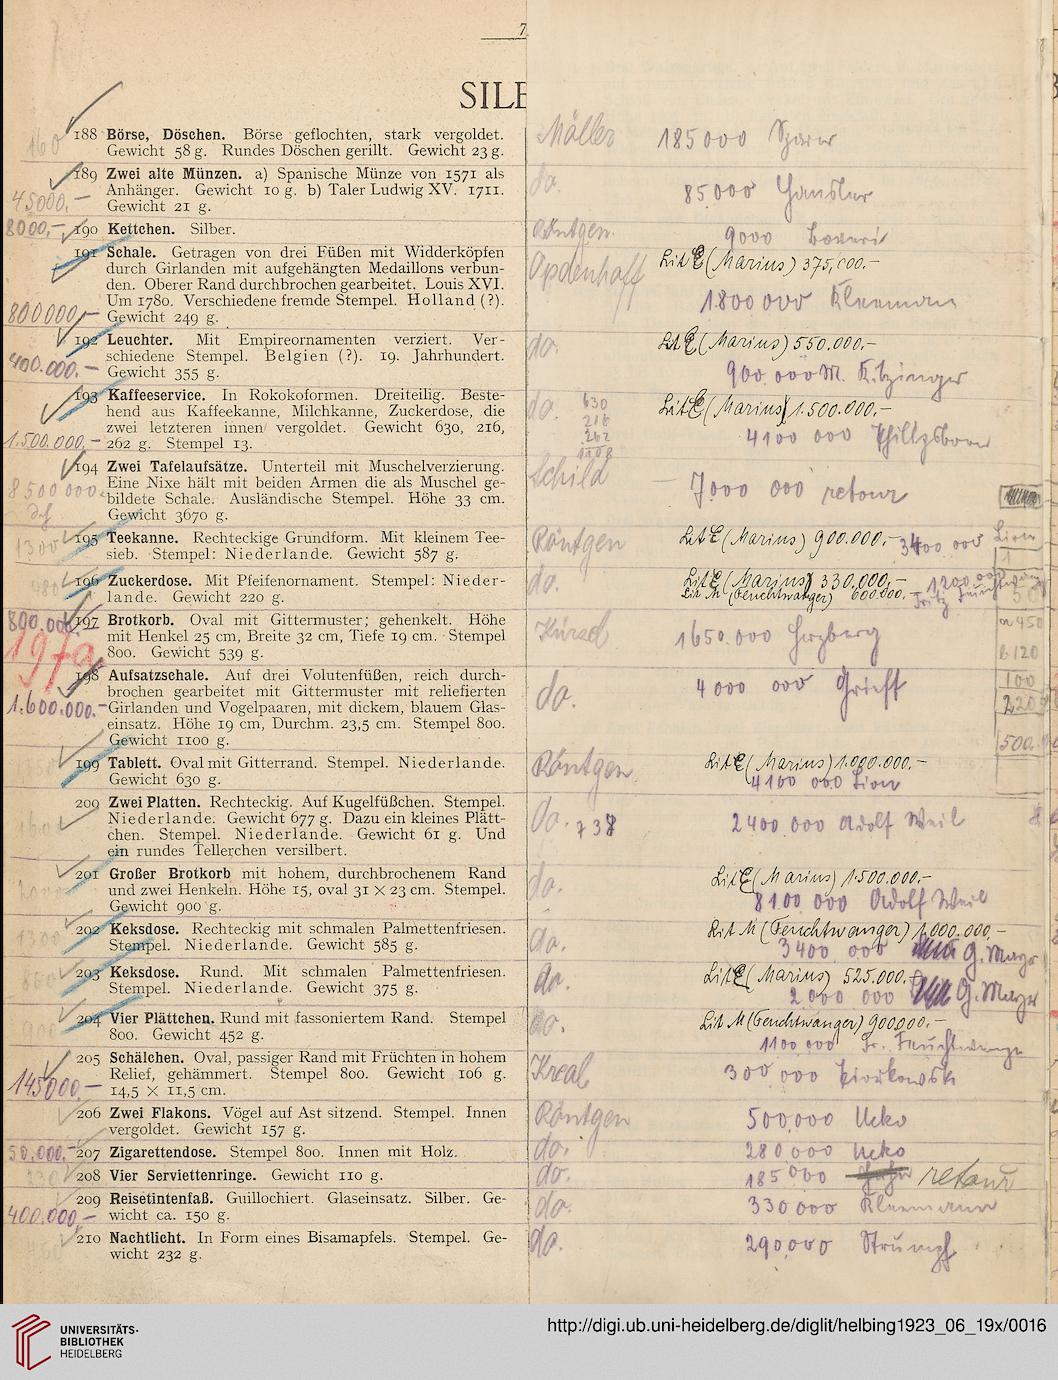 7
SILB
188 Börse, Döschen. Börse geflochten, stark vergoldet.
Gewicht 58 g. Rundes Döschen gerillt. Gewicht 23 g.
Möller 185000
189 Zwei alte Münzen. a) Spanische Münze von 1571 als
Anhänger. Gewicht 10 g. b) Taler Ludwig XV. 1711.
Gewicht 21 g.
45000.–
do. 85.000
8000,– 190 Kettchen. Silber.
Röntgen. 9000
191 Schale. Getragen von drei Füßen mit Widderköpfen
durch Girlanden mit aufgehängten Medaillons verbun-
den. Oberer Rand durchbrochen gearbeitet. Louis XVI.
Um 1780. Verschiedene fremde Stempel. Holland (?).
800000,– Gewicht 249 g.
Opdenhoff Lit E (Marius) 375,000.–
1800000 Kleemann
192 Leuchter. Mit Empireornamenten verziert. Ver-
schiedene Stempel. Belgien (?). 19. Jahrhundert.
400.000.– Gewicht 355 g.
do. Lit E (Marius) 550.000,–
900.000 M. Kitzinger
193 Kaffeeservice. In Rokokoformen. Dreiteilig. Beste-
hend aus Kaffeekanne, Milchkanne, Zuckerdose, die
zwei letzteren innen vergoldet. Gewicht 630, 216,
1.500.000,– 262 g. Stempel 13.
do. 630
216
262
1108
Lit E (Marius) 1.500.000,–
4100 000
194 Zwei Tafelaufsätze. Unterteil mit Muschelverzierung.
Eine Nixe hält mit beiden Armen die als Muschel ge-
8500000.– bildete Schale. Ausländische Stempel. Höhe 33 cm.
Gewicht 3670 g.
Schild – 7000 000 retour
1300 195 Teekanne. Rechteckige Grundform. Mit kleinem Tee-
sieb. Stempel: Niederlande. Gewicht 587 g.
Röntgen Lit E (Marius) 900.000,– 3400 000 Lion
480 196 Zuckerdose. Mit Pfeifenornament. Stempel: Nieder-
lande. Gewicht 220 g.
do. Lit E (Marius) 330.000,–
Lit M (Feuchtwanger) 600.000.–
800.000 197 Brotkorb. Oval mit Gittermuster; gehenkelt. Höhe
mit Henkel 25 cm, Breite 32 cm, Tiefe 19 cm. Stempel
800. Gewicht 539 g.
197a
1650.000 Herzberg
a 450
b 120
100
220
500.
198 Aufsatzschale. Auf drei Volutenfüßen, reich durch-
brochen gearbeitet mit Gittermuster mit reliefierten
1.600.000.– Girlanden und Vogelpaaren, mit dickem, blauem Glas-
einsatz. Höhe 19 cm, Durchm. 23,5 cm. Stempel 800.
Gewicht 1100 g.
do. 4000 000
199 Tablett. Oval mit Gitterrand. Stempel. Niederlande.
Gewicht 630 g.
Röntgen Lit E (Marius) 1.000.000.–
4100 000 Lion
200 Zwei Platten. Rechteckig. Auf Kugelfüßchen. Stempel.
Niederlande. Gewicht 677 g. Dazu ein kleines Plätt-
chen. Stempel. Niederlande. Gewicht 61 g. Und
ein rundes Tellerchen versilbert.
do. 738 2400.000 Adolf Weil
201 Großer Brotkorb mit hohem, durchbrochenem Rand
und zwei Henkeln. Höhe 15, oval 31 × 23 cm. Stempel.
Gewicht 900 g.
do. Lit E (Marius) 1.500.000,–
8100 000 Adolf Weil
1300 202 Keksdose. Rechteckig mit schmalen Palmettenfriesen.
Stempel. Niederlande. Gewicht 585 g.
do. Lit M (Feuchtwanger) 1.000.000,–
3400 000 G. Mayer
203 Keksdose. Rund. Mit schmalen Palmettenfriesen.
Stempel. Niederlande. Gewicht 375 g.
do. Lit E (Marius) 525.000.–
2000 000 G. Mayer
204 Vier Plättchen. Rund mit fassoniertem Rand. Stempel
800. Gewicht 452 g.
do. Lit M (Feuchtwanger) 900.000.–
1100 000 Fr. Feuchtwanger
205 Schälchen. Oval, passiger Rand mit Früchten in hohem
Relief, gehämmert. Stempel 800. Gewicht 106 g.
145000.– 14,5 × 11,5 cm.
Kreal 300,000
206 Zwei Flakons. Vögel auf Ast sitzend. Stempel. Innen
vergoldet. Gewicht 157 g.
Röntgen 500,000 Ucko
50.000,– 207 Zigarettendose. Stempel 800. Innen mit Holz.
do. 280000 Ucko
208 Vier Serviettenringe. Gewicht 110 g.
do. 185000 retour
209 Reisetintenfaß. Guillochiert. Glaseinsatz. Silber. Ge-
400.000– wicht ca. 150 g.
do. 330000 Kleemann
210 Nachtlicht. In Form eines Bisamapfels. Stempel. Ge-
wicht 232 g.
do. 290,000 Strumpf
UNIVERSITÄTS-
BIBLIOTHEK
HEIDELBERG
http://digi.ub.uni-heidelberg.de/diglit/helbing1923_06_19x/0016